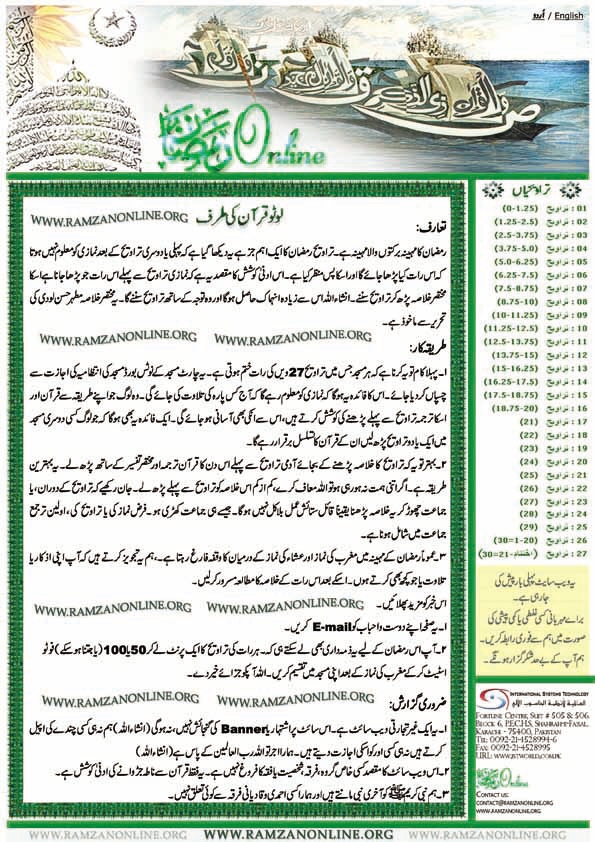 English / اُردو
رمضان Online
WWW.RAMZANONLINE.ORG
لوٹو قرآن کی طرف
تعارف:
رمضان کا مہینہ برکتوں والا مہینہ ہے۔ تراویح رمضان کا ایک اہم جز ہے یہ دیکھا گیا ہے کہ پہلی یا دوسری تراویح کے بعد نمازی کو معلوم نہیں ہوتا
کہ اس رات کیا پڑھا جائے گا اور اسکا پس منظر کیا ہے۔ اس ادنیٰ کوشش کا مقصد یہ ہے کہ نمازی تراویح سے پہلے اس رات جو پڑھا جانا ہے اسکا
مختصر خلاصہ پڑھ کر تراویح سنے۔ انشاء اللہ اس سے زیادہ انہماک حاصل ہوگا اور وہ توجہ کے ساتھ تراویح سنے گا۔ یہ خلاصہ مظہر حسن لودی کی
تحریر سے ماخوذ ہے۔
WWW.RAMZANONLINE.ORG WWW.RAMZANONLINE.ORG
طریقہ کار:
۱۔ پہلا کام تو یہ کرنا ہے کہ ہر مسجد جس میں تراویح 27 ویں کی رات ختم ہوتی ہے۔ یہ چارٹ مسجد کے نوٹس بورڈ مسجد کی انتظامیہ کی اجازت سے
چسپاں کر دیا جائے۔ اس کا فائدہ یہ ہوگا کہ نمازی کو معلوم ہوگا کہ آج کس پارہ کی تلاوت کی جائے گی۔ وہ لوگ جو اپنے طریقہ سے قرآن اور
اسکا ترجمہ تراویح سے پہلے پڑھنے کی کوشش کرتے ہیں، اس سے انکی بھی آسانی ہو جائے گی۔ ایک فائدہ یہ بھی ہوگا کہ جو لوگ کسی دوسری مسجد
میں ایک یا دو تراویح پڑھ لیں ان کے قرآن کا تسلسل برقرار رہے گا۔
۲۔ بہتر تو یہ کہ تراویح کا خلاصہ پڑھنے کے بجائے آدمی تراویح سے پہلے اس دن کا قرآن ترجمہ اور مختصر تفسیر کے ساتھ پڑھ لے۔ یہ بہترین
طریقہ ہے۔ اگر اتنی ہمت نہ ہو رہی ہو تو اللہ معاف کرے، کم از کم اس خلاصہ کو تراویح سے پہلے پڑھ لے۔ جان رکھیے کہ تراویح کے دوران، یا
جماعت چھوڑ کر یہ خلاصہ پڑھنا یقیناً قابل ستائش عمل بالکل نہیں ہوگا۔ جیسے ہی جماعت کھڑی ہو۔ فرض نماز کی یا تراویح کی، اولین ترجیح
جماعت میں شامل ہونا ہے۔
۳۔ عموماً رمضان کے مہینہ میں مغرب کی نماز اور عشاء کی نماز کے درمیان کا وقفہ فارغ رہتا ہے۔ ہم یہ تجویز کرتے ہیں کہ آپ اپنی اذکار یا
تلاوت یا جو کچھ بھی کرتے ہوں۔ اسکے بعد اس رات کے خلاصہ کا مطالعہ سرور کر لیں۔
اس خبر کو مزید پھیلائیں۔
WWW.RAMZANONLINE.ORG WWW.RAMZANONLINE.ORG
۱۔ یہ صفحہ اپنے دوست واحباب کو E-mail کریں۔
۲۔ آپ اس رمضان کے لیے یہ ذمہ داری بھی لے سکتے ہی کہ۔ ہر رات کی تراویح کا ایک پرنٹ لے کر 50 یا 100 (یا جتنا ہو سکے) فوٹو
اسٹیٹ کر کے مغرب کی نماز کے بعد اپنی مسجد میں تقسیم کریں۔ اللہ آپکو جزائے خیر دے۔
ضروری گزارش:
WWW.RAMZANONLINE.ORG WWW.RAMZANONLINE.ORG
۱۔ یہ ایک غیر تجارتی ویب سائٹ ہے۔ اس سائٹ پر اشتہار یا Banner کی گنجائش نہیں، نہ ہوگی (انشاء اللہ) ہم نہ ہی کسی چندے کی اپیل
کرتے ہیں نہ ہی کسی اور کو اسکی اجازت دیتے ہیں۔ ہمارا اجر تو اللہ رب العالمین کے پاس ہے (انشاء اللہ)
۲۔ اس ویب سائٹ کا مقصد کسی خاص گروہ، فرقہ، شخصیت یا فقہ کا فروغ نہیں ہے۔ یہ فقط قرآن سے ناطہ جڑوانے کی ادنیٰ کوشش ہے۔
۳۔ ہم نبی کریم ﷺ کو آخری نبی مانتے ہیں اور ہمارا کسی احمدی و قادیانی فرقہ سے کوئی تعلق نہیں۔
WWW.RAMZANONLINE.ORG WWW.RAMZANONLINE.ORG WWW.RAMZANONLINE.ORG
تراویحیاں
01 : تراویح (0-1.25)
02 : تراویح (1.25-2.5)
03 : تراویح (2.5-3.75)
04 : تراویح (3.75-5.0)
05 : تراویح (5.0-6.25)
06 : تراویح (6.25-7.5)
07 : تراویح (7.5-8.75)
08 : تراویح (8.75-10)
09 : تراویح (10-11.25)
10 : تراویح (11.25-12.5)
11 : تراویح (12.5-13.75)
12 : تراویح (13.75-15)
13 : تراویح (15-16.25)
14 : تراویح (16.25-17.5)
15 : تراویح (17.5-18.75)
16 : تراویح (18.75-20)
17 : تراویح (21)
18 : تراویح (22)
19 : تراویح (23)
20 : تراویح (24)
21 : تراویح (25)
22 : تراویح (26)
23 : تراویح (27)
24 : تراویح (28)
25 : تراویح (29)
26 : تراویح (30=1-20)
27 : تراویح (30=21-اختتام)
یہ ویب سایٹ پہلی بار پیش کی
جا رہی ہے۔
براے مہربانی کسی غلطی یا کمی پیشی کی
صورت میں ہم سے فوری رابطہ کریں۔
ہم آپ کے بے حد شکر گزار ہونگے۔
INTERNATIONAL SYSTEMS TECHNOLOGY
FORTUNE CENTRE, SUIT # 505 & 506.
BLOCK 6, P.E.C.H.S, SHAHRAH-E-FAISAL.
KARACHI - 75400, PAKISTAN
TEL: 0092-21-4528994-6
FAX: 0092-21-4528995
URL: WWW.ISTWORLD.COM.PK
رمضان Online
CONTACT US:
CONTACT@RAMZANONLINE.ORG
WWW.RAMZANONLINE.ORG